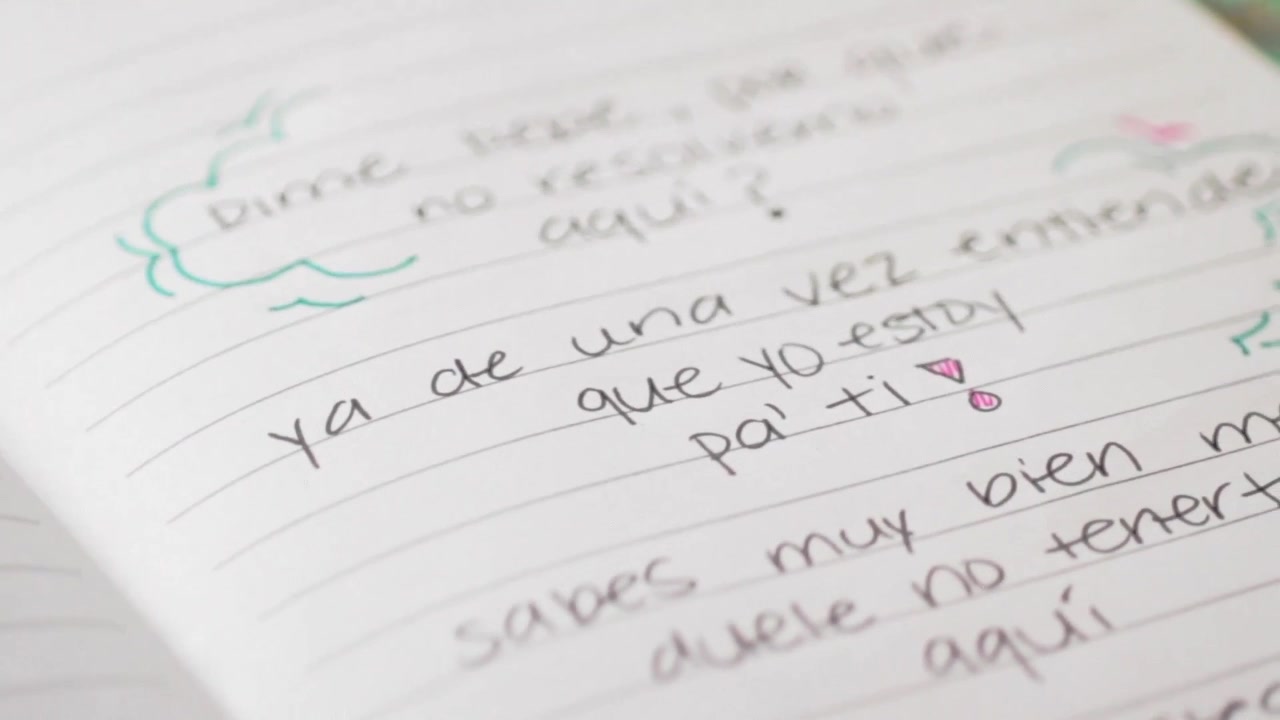 Dime bebé,
no resolverlo
aquí?
ya de una vez entiende
que yo estoy
pa' ti!
sabes muy bien m
duele no tenert
aquí